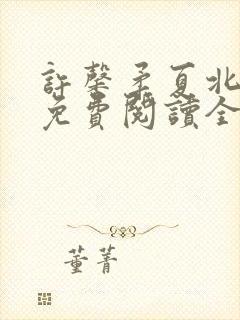 許馨矛夏北
免費閱讀全
董菁